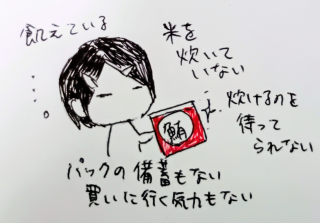 飢えている
米を
炊いて
いない
炊けるのを
待って
られない
鮪
パックの備蓄もない
買いに行く気力もない